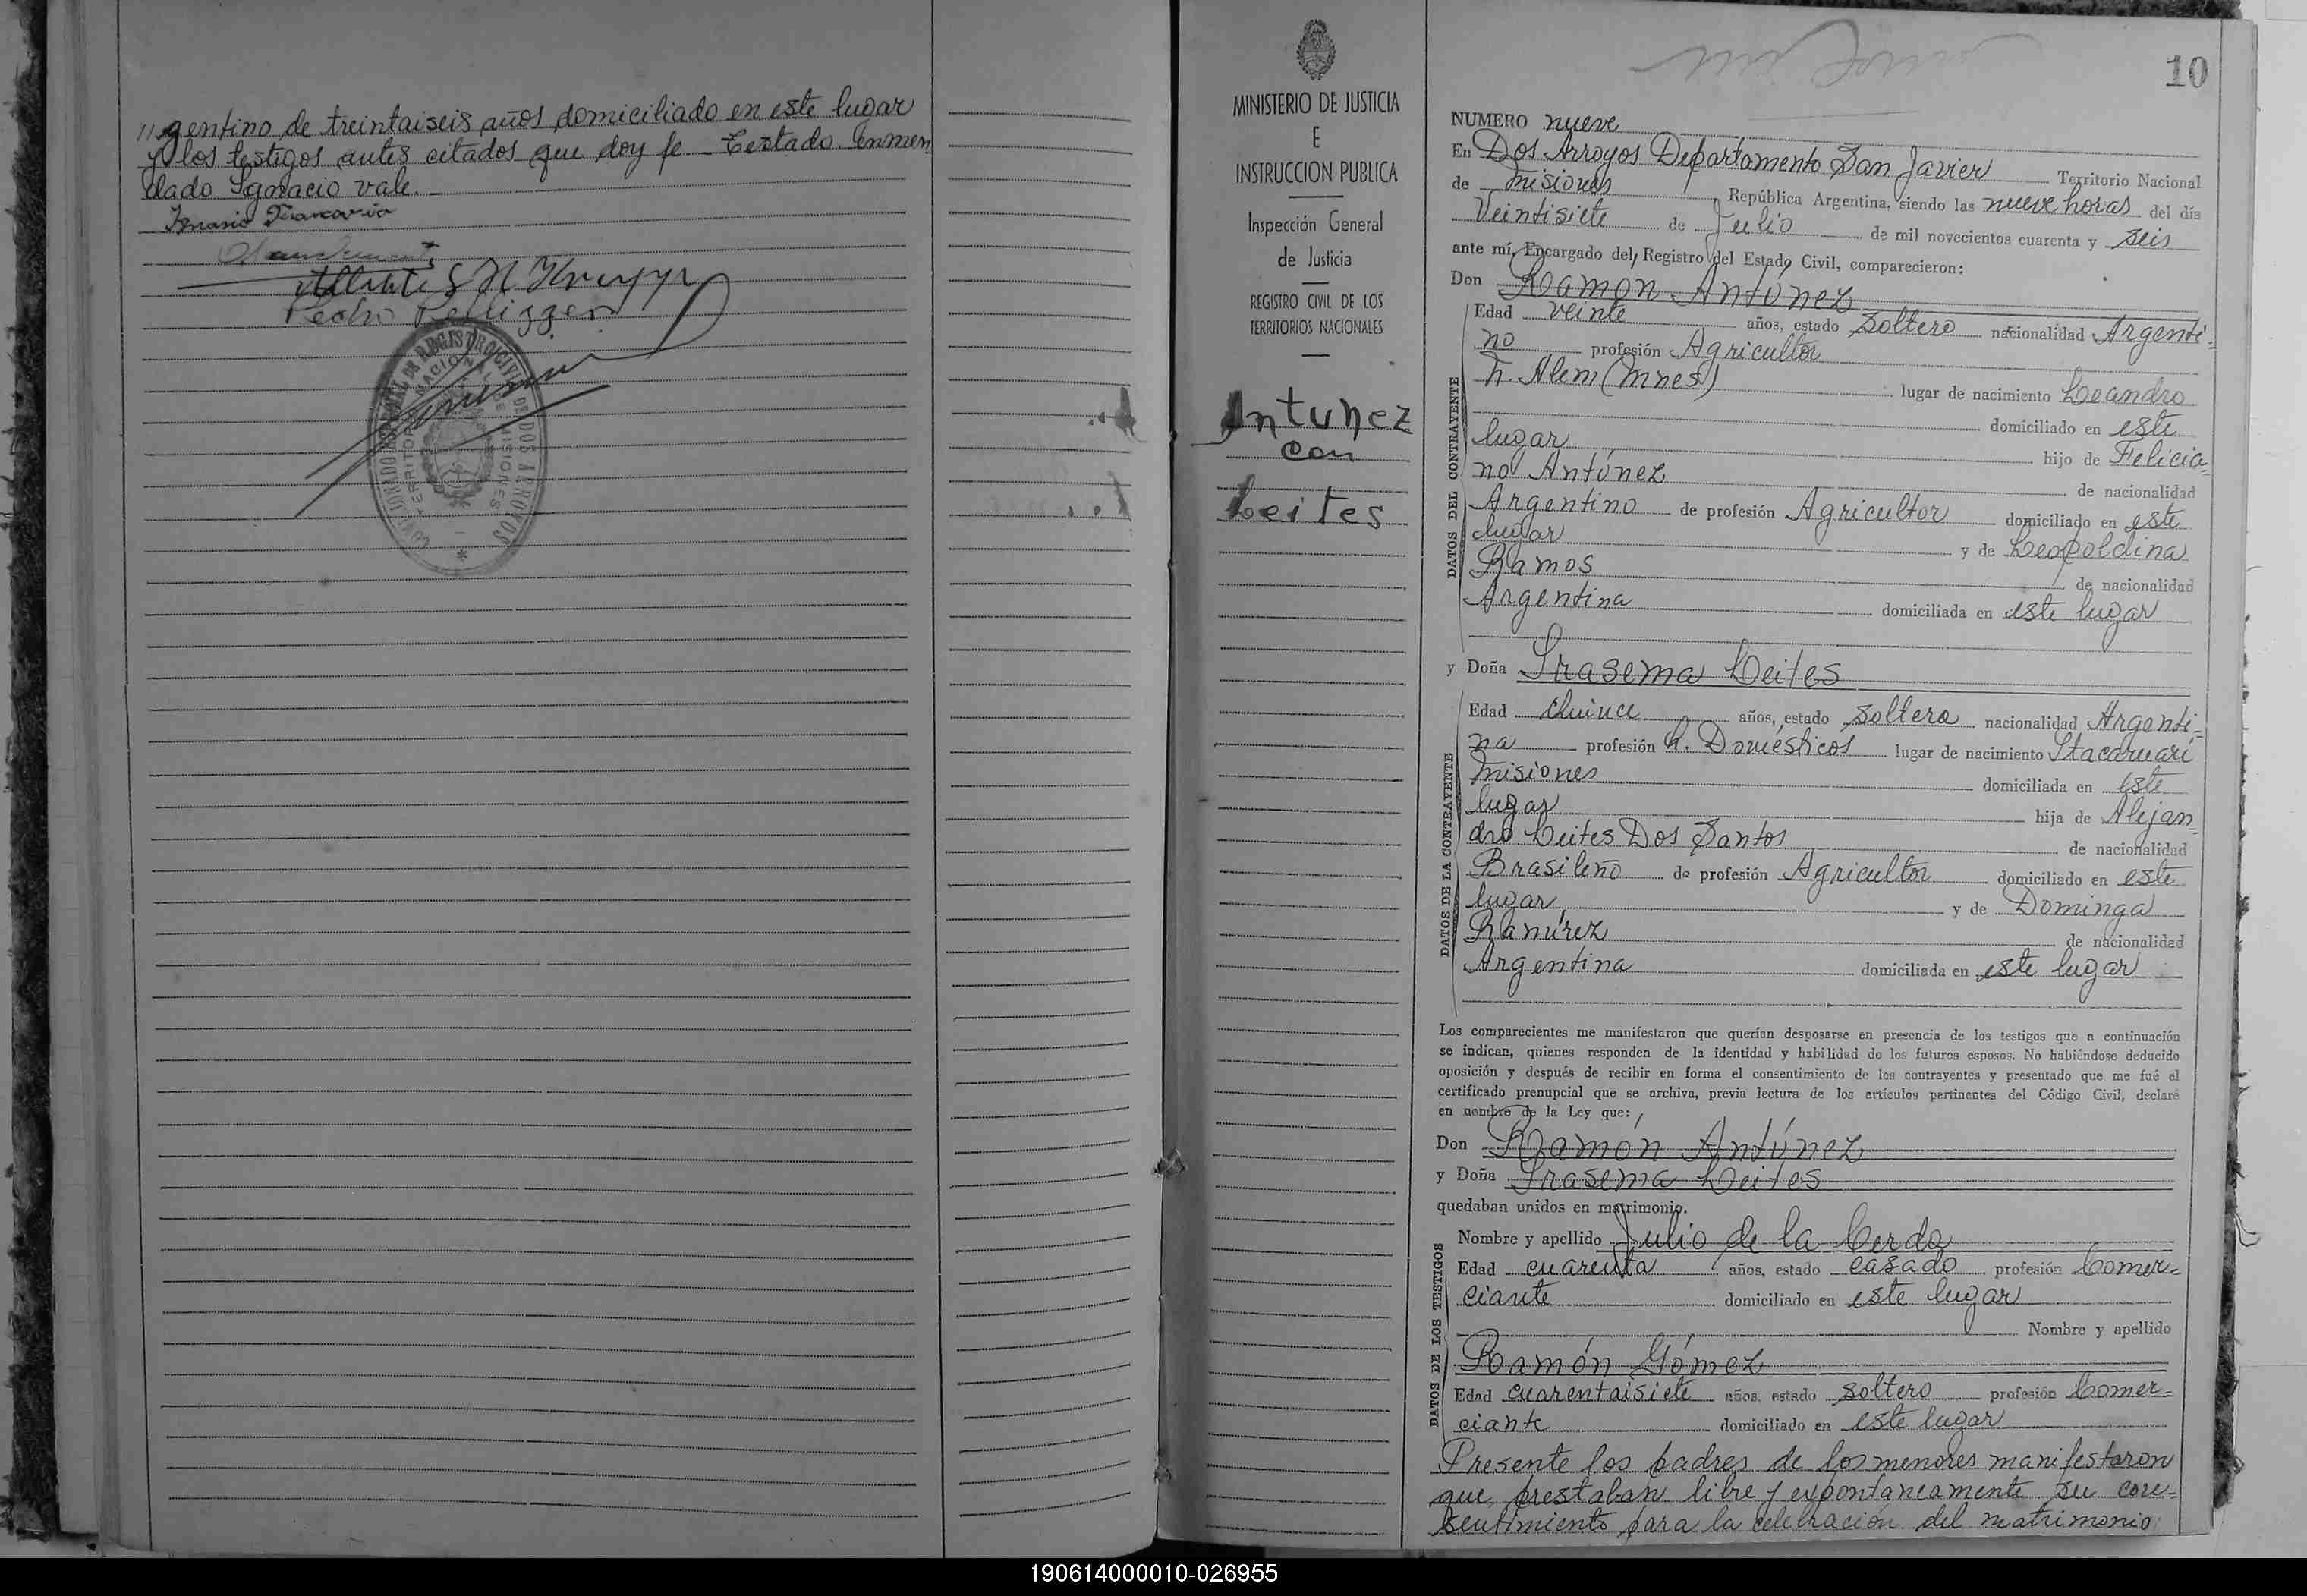 //gentino de treintaiseis años domiciliado en este lugar
y los testigos antes citados que doy fe - Testado. Enmen
dado Ignacio vale. -
Pedro Pellizzer
REGISTRO CIVIL DE DOS ARROYOS
TERRITORIO NACIONAL DE MISIONES
MINISTERIO DE JUSTICIA
E
INSTRUCCION PUBLICA
Inspección General
de Justicia
REGISTRO CIVIL DE LOS
TERRITORIOS NACIONALES
Antunez
con
Leites
10
NUMERO nueve
En Dos Arroyos Departamento San Javier Territorio Nacional
de Misiones República Argentina, siendo las nueve horas del día
Veintisiete de Julio de mil novecientos cuarenta y seis
ante mí, Encargado del Registro del Estado Civil, comparecieron:
Don Ramon Antúnez
DATOS DEL CONTRAYENTE
Edad veinte años, estado Soltero nacionalidad Argenti-
no profesión Agricultor
N. Alem (Mnes) lugar de nacimiento Leandro
domiciliado en este
lugar hijo de Felicia-
no Antúnez de nacionalidad
Argentino de profesión Agricultor domiciliado en este
lugar y de Leopoldina
Ramos de nacionalidad
Argentina domiciliada en este lugar
y Doña Irasema Leites
DATOS DE LA CONTRAYENTE
Edad Quince años, estado Soltera nacionalidad Argenti-
na profesión Q. Domésticos lugar de nacimiento Itacaruaré
Misiones domiciliada en este
lugar hija de Alejan-
dro Leites Dos Santos de nacionalidad
Brasileño de profesión Agricultor domiciliado en este
lugar y de Dominga
Ramírez de nacionalidad
Argentina domiciliada en este lugar
Los comparecientes me manifestaron que querían desposarse en presencia de los testigos que a continuación
se indican, quienes responden de la identidad y habilidad de los futuros esposos. No habiéndose deducido
oposición y después de recibir en forma el consentimiento de los contrayentes y presentado que me fué el
certificado prenupcial que se archiva, previa lectura de los artículos pertinentes del Código Civil, declaré
en nombre de la Ley que:
Don Ramón Antúnez
y Doña Irasema Leites
quedaban unidos en matrimonio.
DATOS DE LOS TESTIGOS
Nombre y apellido Julio de la Cerda
Edad cuarenta años, estado casado profesión Comer-
ciante domiciliado en este lugar
Nombre y apellido
Ramón Gómez
Edad cuarentaisiete años, estado soltero profesión Comer-
ciante domiciliado en este lugar
Presente los padres de los menores manifestaron
que prestaban libre y expontáneamente su con-
sentimiento para la celebración del matrimonio
190614000010-026955